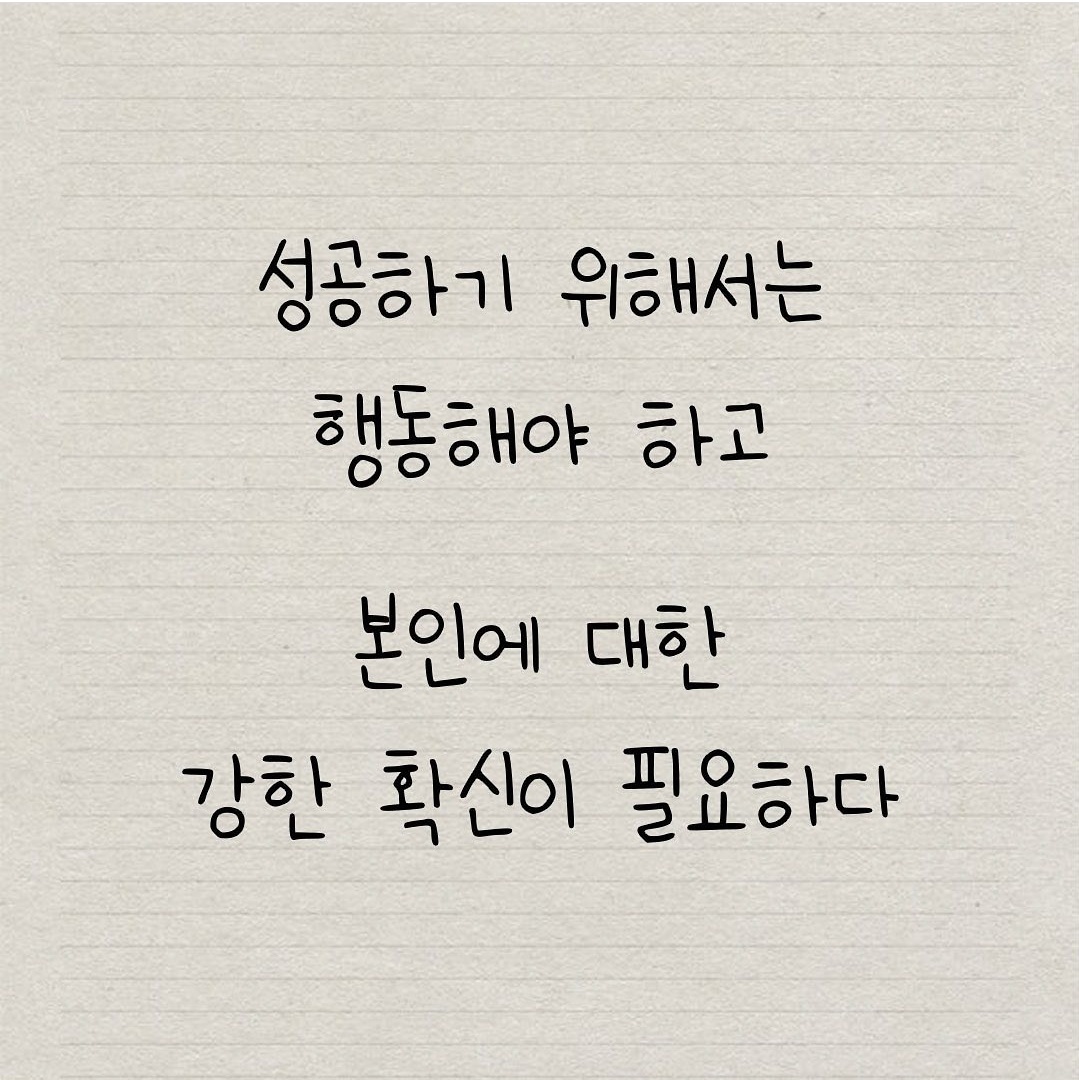 성공하기 위해서는
행동해야 하고
본인에 대한
강한 확신이 필요하다